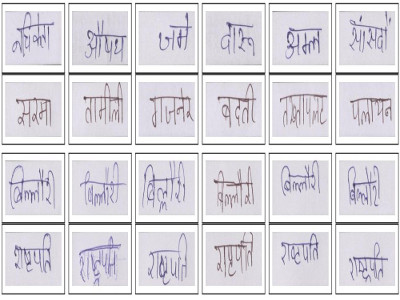 औषध जमे दारू अम्ल सांसदों
सरमा तामीली गजनेर बदती पलायन
बिल्लौरी बिल्लौरी बिल्लौरी बिल्लौरी बिल्लौरी बिल्लौरी
राष्ट्रपति राष्ट्रपति राष्ट्रपति राष्ट्रपति राष्ट्रपति राष्ट्रपति